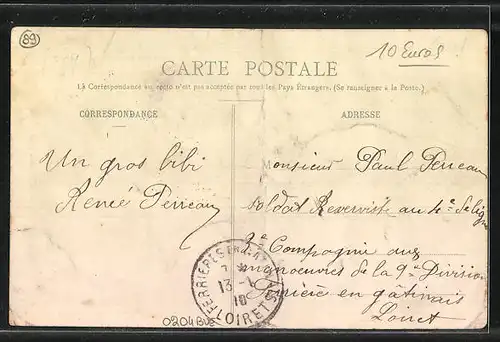 89
10 Euros
CARTE POSTALE
La Correspondance au recto n'est pas acceptée par tous les Pays Étrangers. (Se renseigner à la Poste.)
CORRESPONDANCE
ADRESSE
Un gros bibi
Renée Perreau
Monsieur Paul Perreau
soldat Reserviste au 4e de ligne
2e Compagnie aux
manoeuvres de la 9e Division
Ferrière en gâtinais
Loiret
FERRIERES
13
10
LOIRET
0204BVE